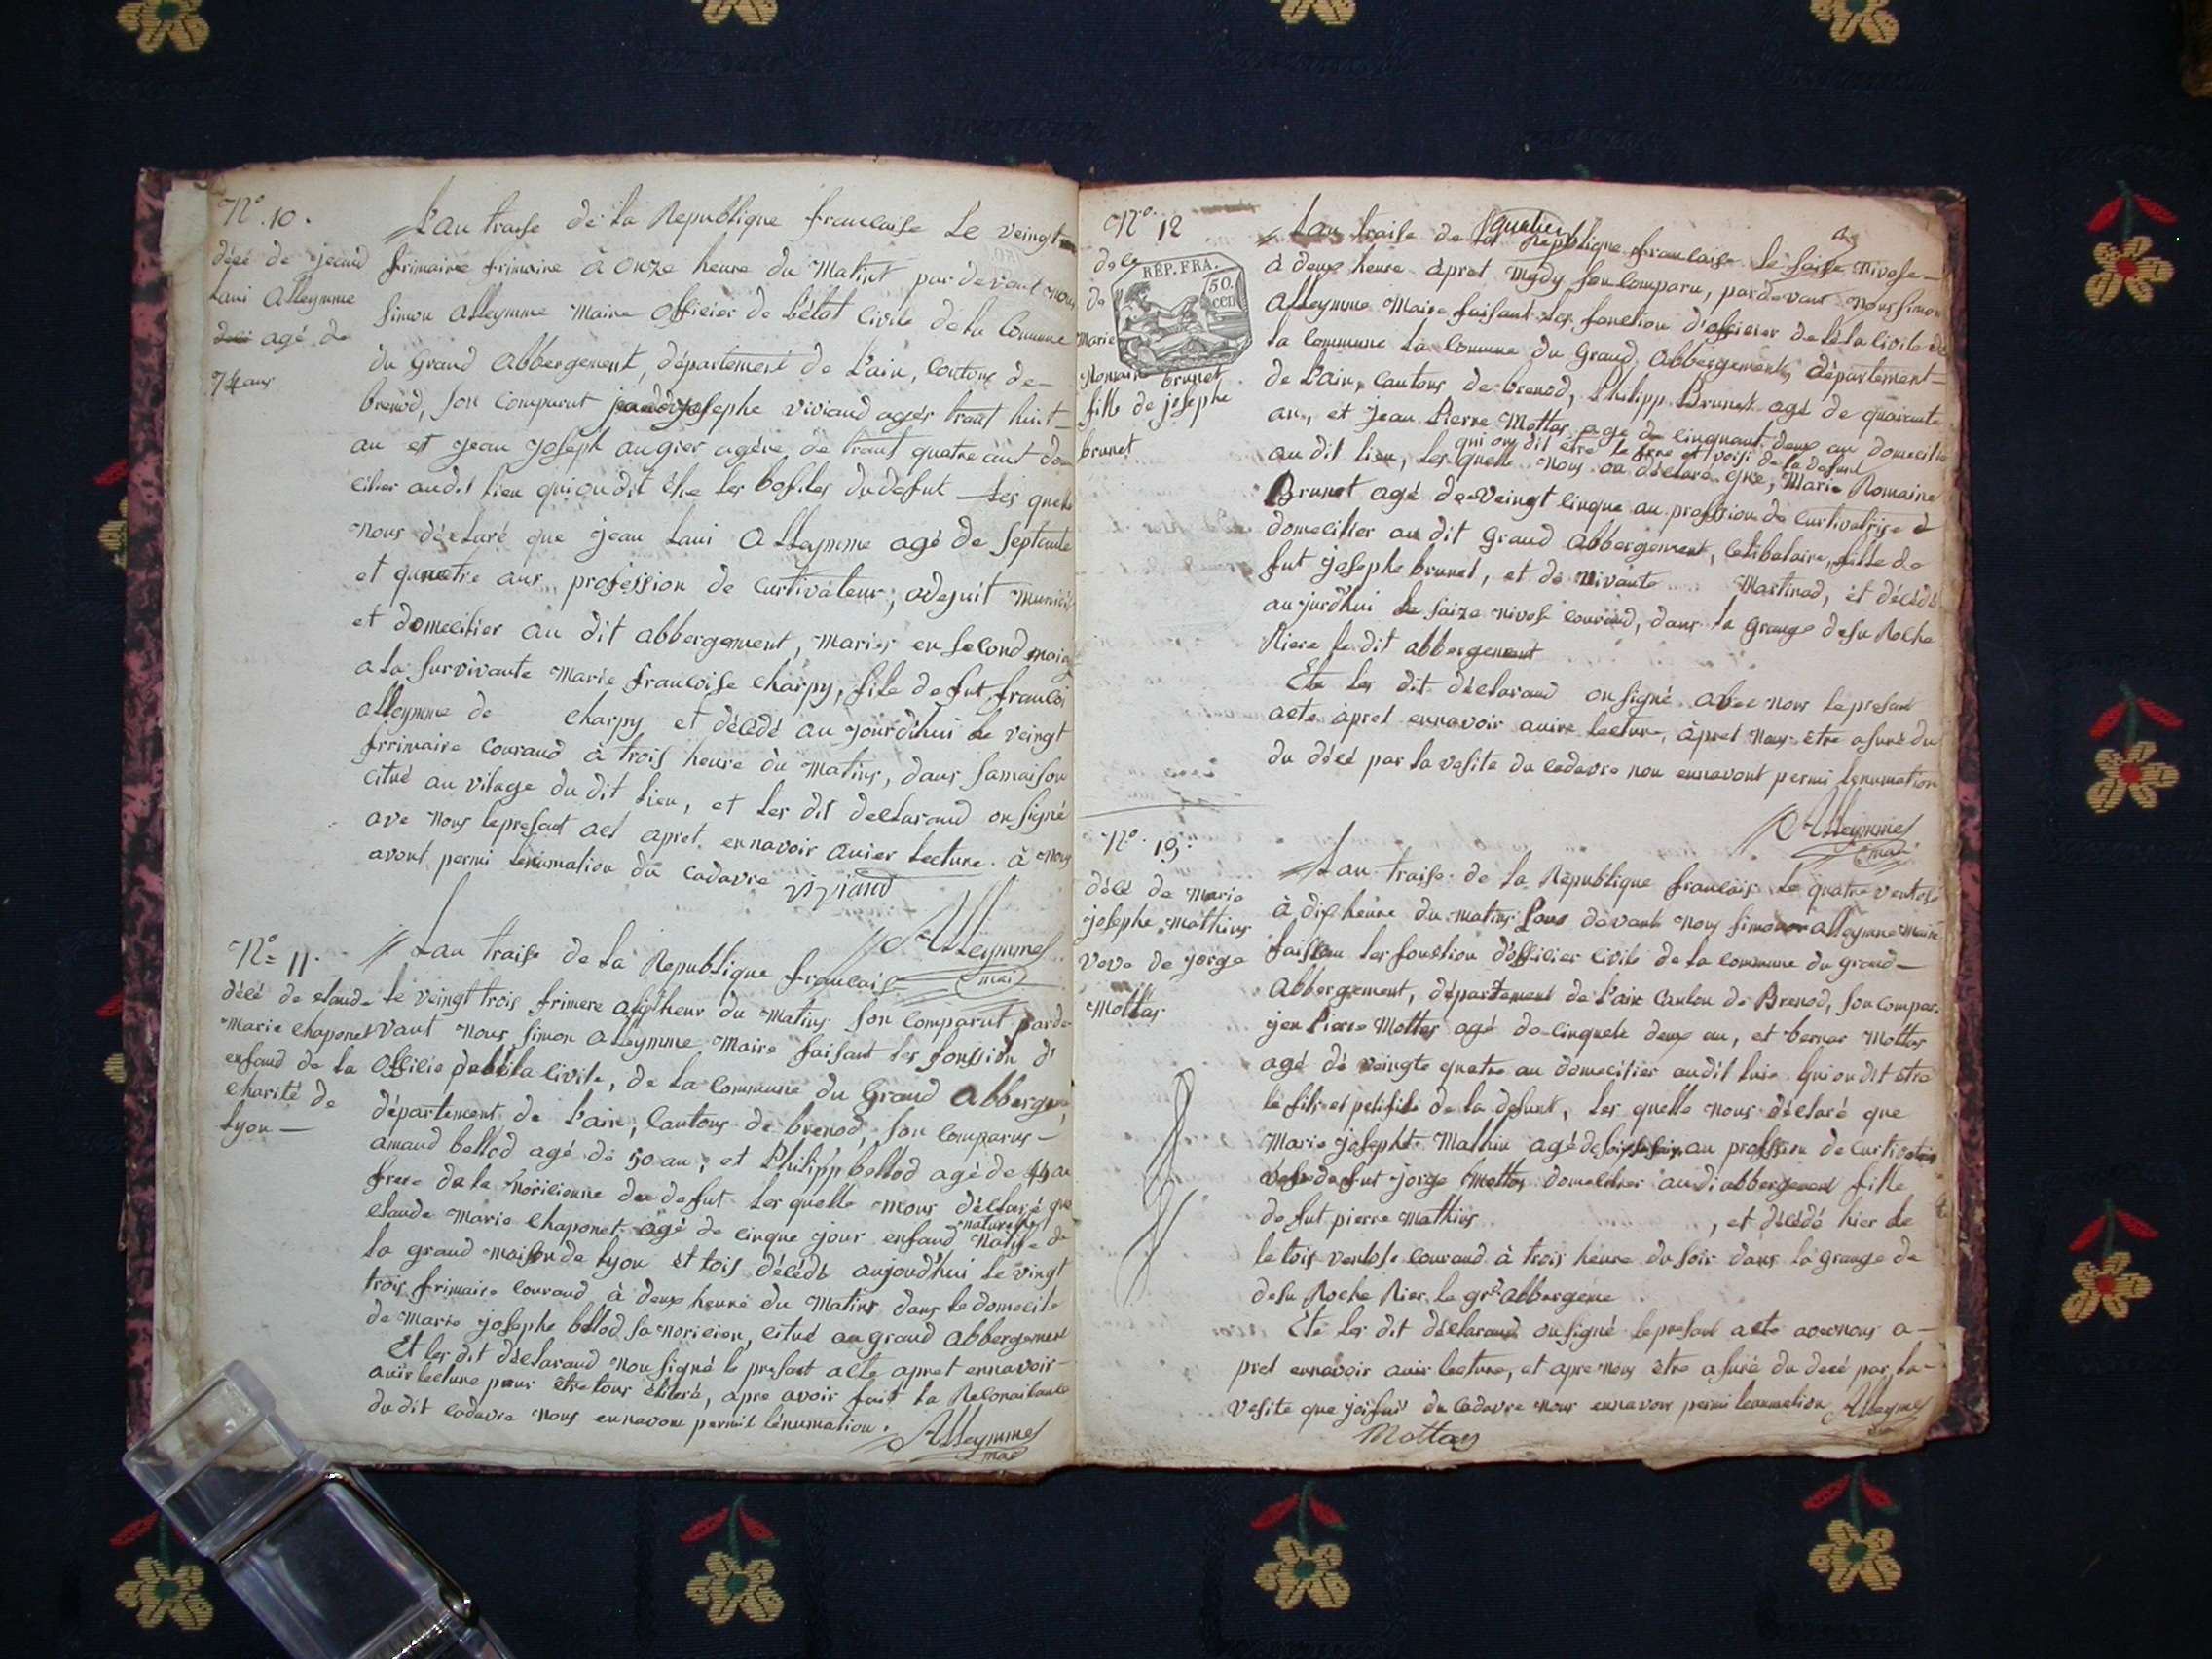 N.° 10.
décé de jeand
Laui Alleymme
agé de
74 ans
L'an traise de la Republique francaise Le veingt
frimaire frimaire à onze heure du Matint par devant nous
simon Alleymme Maire officier de l'état Civile de la Commune
du Grand Abbergement, département de L'ain, Contons de
brenod, son Comparut josephe viviand agér trant huit
an et jean joseph augier agére de trant quatre ant do
cilier audit lieu qui ou dit être les du defut Les quele
nous déclaré que jean Laui Alleymme agé de septente
et quaetre ans profession de Curtivateur,
et domecilier au dit abbergement, Marier en second
a la survivante Marie francoise Charpy, file de fut francoi
alleymme de Charpy et décédé au jourd'hui le veingt
frrimaire Courand à trois heure du Matins, dans sa maison
citué au vilage du dit lieu, et les dit declarand on signé
ave nous le present act apret ennavoir auier Lecture. à nous
avont permi lenumation du Cadavre viviand
Alleymme
mai
N.° 11.
décé de claude
Marie Chaponet
enfand de la
charité de
Lyon
L'an traise de la Republique francais
le veingt trois frimere heur du Matins son comparut parde
vant nous Simon Alleymme Maire faisant les fonsion d'
offilié civile, de la Commune du Grand Abbergem
département de L'ain, Cantons de brenod, son comparus
amand bellod agé de 50 an, et Philipp bellod agé de 44 an
frere de la noricienne du defut Les quelle nous déclaré que
claude Marie Chaponet agé de cinque jour enfand naturelle Natife de
la grand maison de Lyon et tois décédé aujourd'hui le vingt
trois frimaire courand à deux heure du Matins dans le domecile
de Marie josephe bellod sa noricien, citué au grand abbergement
Et les dit déclarand non signé le present acte apret ennavoir
auir lecture pour être tous élitere, apre avoir fait la Reconaisance
du dit cadavre nous ennavon permit lénumation.
Alleymme
mai
N.° 12
déce
de
Marie
Romaine brunet
fille de josephe
brunet
REP. FRA.
50.
cen
L'an traise de la Republique francaise le saise nivose
à deux heure àpret Mydy son comparu, par devant nous simon
Alleymme Maire faisant les fonction d'officier de l'éta civile de
la Commune la Comune du Grand Abbergement, département
de L'ain, Cantons de brenod, Philipp Brunet agé de quarante
an, et jean Pierre Mottas age de cinquant deux an domecilie
qui on dit être le frre et voisi de la defunt
au dit lieu, les quelle nous on déclaré que, Marie Romaine
Brunet agé de Veingt cinque an profession de Curtivatrise et
domecilier au dit Grand Abbergement, Celibataire, fille de
fut josephe brunet, et de vivante Martinod, et décédé
au jurd'hui le saize nivose courand, dans la Grange desu Roche
Riere le dit abbergement
Ete les dit déclarand on signé avec nous le presant
acte àpret ennavoir auire lecture, àpret nous être asuré du
du décé par la vesite du cadavre nou ennavont permi lenumation
Alleymme
mai
N.° 19.
décé de Marie
josephe Mathins
veve de jorge
Mottas.
L'an traise de la Republique francais le quatre ventose
à dix heure du matins devant nous simon alleymme Maire
faissan les fonction d'officier civile de la commune du grand
Abbergement, département de l'ain Canton de Brenod, son compar.
jen Pierre Mottas agé de cinquete deux an, et bernar Mottas
agé de veingte quatre an domecilier audit luie qui on dit être
le fils et petifils de la defunt, les quelle nous déclaré que
Marie josephte Mathin agé de an profession de Curtivatris
vefve de fut jorge Mottas domecilier au di abbergement fille
de fut pierre Mathins , et décédé hier le
le tois ventose courand à trois heure du soir dans la grange de
desu Roche Rier le grd abbergeme
Ete les dit déclarand on signé le presant acte avec nous a
pret ennavoir auir lecture, et apre nous être asuré du decé par la
vesite que joi fait du Cadavre nous ennavon permi lenumation Alleymme
Mottas